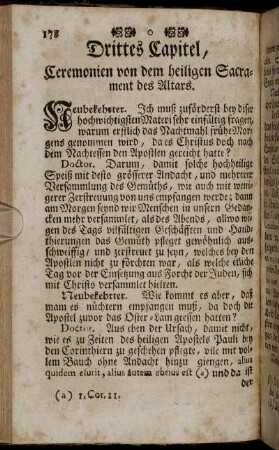 178
Drittes Capitel,
Ceremonien von dem heiligen Sacra-
ment des Altars.
Neubekehrter. Ich muß zuforderst bey diser
hochwichtigsten Materi sehr einfältig fragen,
warum erstlich das Nachtmahl fruhe Mor-
gens genommen wird, da es Christus doch nach
dem Nachtessen den Apostlen gereicht hatte?
Doctor. Darum, damit solche hochheilige
Speiß mit desto grösserer Andacht, und mehrerer
Versammlung des Gemüths, wie auch mit weni-
gerer Zerstreuung von uns empfangen werde; dann
am Morgen seynd wir Menschen in unsern Gedan-
cken mehr versammlet, als des Abends, allwo we-
gen des Tags vilfältigen Geschäfften und Hand-
thierungen das Gemüth pfleget gewöhnlich aus-
schweiffig, und zerstreuet zu seyn, welches bey den
Apostlen nicht zu förchten war, als welche etlich
Tag vor der Einsetzung aus Forcht der Juden, sich
mit Christo versammlet hielten.
Neubekehrter. Wie kommt es aber, daß
mam es nüchtern empfangen muß, da doch die
Apostel zuvor das Oster-Lam geessen hatten?
Doctor. Aus eben der Ursach, damit nicht,
wie es zu Zeiten des heiligen Apostels Pauli bey
den Corinthiern zu geschehen pflegte, vile mit vol-
lem Bauch ohne Andacht hinzu giengen, alius
quidem esurit, alius autem ebrius est (a) und da ist
der
(a) 1. Cor. 11.